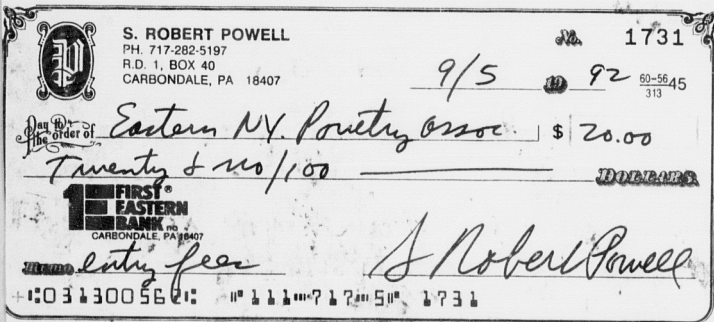 S. ROBERT POWELL
PH. 717-282-5197
R.D. 1, BOX 40
CARBONDALE, PA 18407
No. 1731
9/5 19 92 60-5645/313
Pay to the order of Eastern N.Y. Poultry Assoc. $ 20.00
Twenty & no/100 DOLLARS
1 FIRST® EASTERN BANK na
CARBONDALE, PA 18407
MEMO entry fees S Robert Powell
⑆031300562⑆ ⑈111⑉717⑉5⑈ 1731